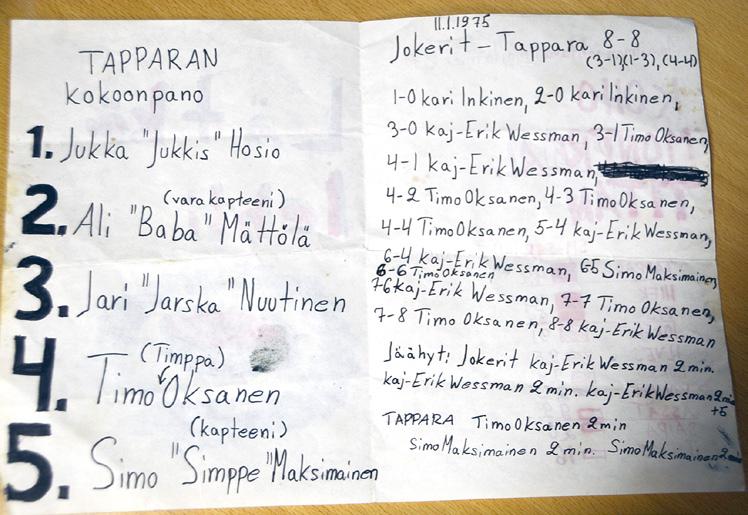 TAPPARAN
Kokoonpano
1. Jukka "Jukkis" Hosio
(varakapteeni)
2. Ali "Baba" Mättölä
3. Jari "Jarska" Nuutinen
(Timppa)
4. Timo Oksanen
(kapteeni)
5. Simo "Simppe" Maksimainen
11.1.1975
Jokerit - Tappara 8-8
(3-1)(1-3), (4-4)
1-0 kari Inkinen, 2-0 kari Inkinen,
3-0 kaj-Erik Wessman, 3-1 Timo Oksanen,
4-1 kaj-Erik Wessman,
4-2 Timo Oksanen, 4-3 Timo Oksanen,
4-4 Timo Oksanen, 5-4 kaj-Erik Wessman,
6-4 kaj-Erik Wessman, 6-5 Simo Maksimainen,
6-6 Timo Oksanen
7-6 kaj-Erik Wessman, 7-7 Timo Oksanen,
7-8 Timo Oksanen, 8-8 kaj-Erik Wessman
Jäähyt: Jokerit kaj-Erik Wessman 2 min.
kaj-Erik Wessman 2 min. kaj-Erik Wessman 2 min
+5
TAPPARA Timo Oksanen 2 min
Simo Maksimainen 2 min. Simo Maksimainen 2